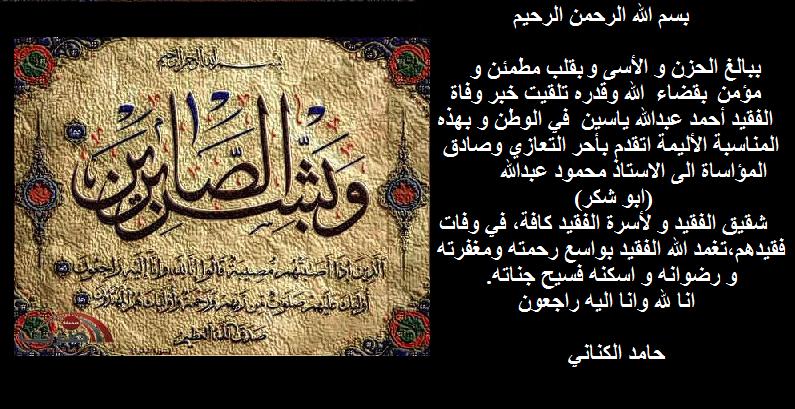 بسم الله الرحمن الرحيم
ببالغ الحزن و الأسى و بقلب مطمئن و
مؤمن بقضاء الله وقدره تلقيت خبر وفاة
الفقيد أحمد عبدالله ياسين في الوطن و بهذه
المناسبة الأليمة اتقدم بأحر التعازي وصادق
المؤاساة الى الاستاذ محمود عبدالله
(ابو شكر)
شقيق الفقيد و لأسرة الفقيد كافة، في وفات
فقيدهم،تغمد الله الفقيد بواسع رحمته ومغفرته
و رضوانه و اسكنه فسيح جناته.
انا لله وانا اليه راجعون
حامد الكناني
بسم الله الرحمن الرحيم
وَبَشِّرِ الصَّابِرِينَ
الذين اذا اصابتهم مصيبة قالوا انا لله وانا اليه راجعون
أولئك عليهم صلوات من ربهم ورحمة وأولئك هم المهتدون
صدق الله العظيم